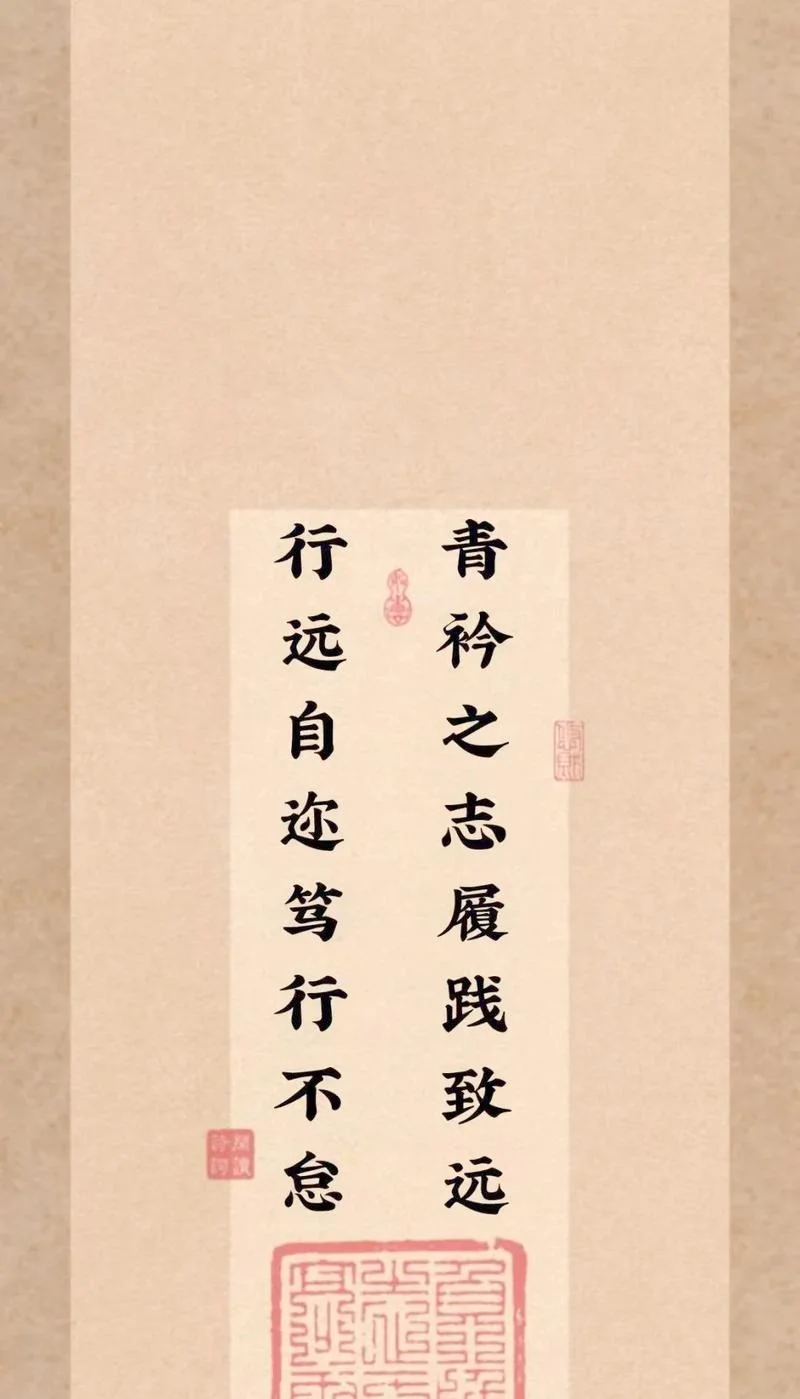 青衿之志履践致远
行远自迩笃行不怠